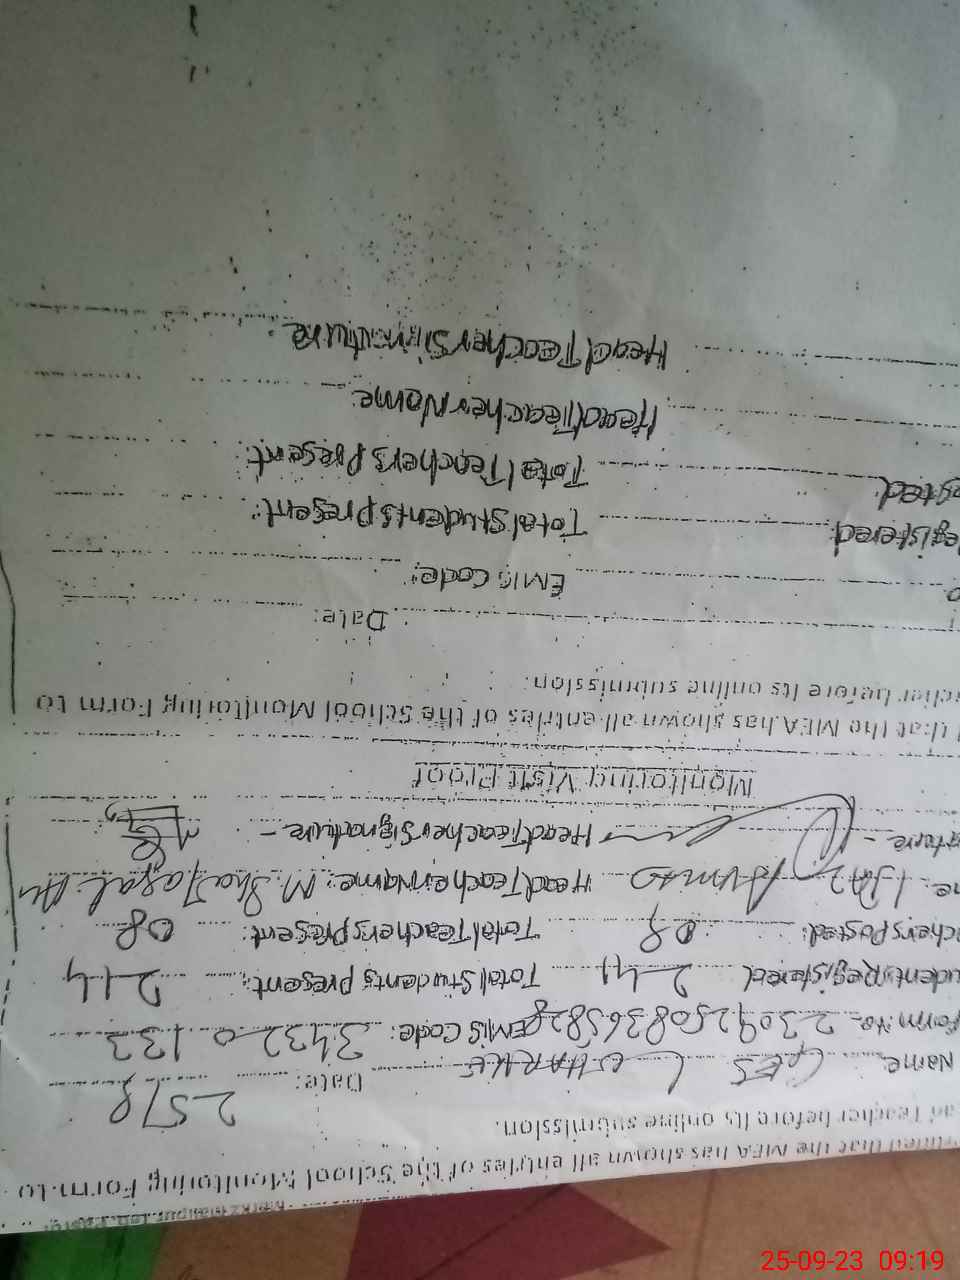 that the MEA has shown all entries of the School Monitoring Form to
ad Teacher before its online submission.
Name GES L Date: 25/9
Form No. 2309250836582 EMIS Code: 34320133
udents Registered 241 Total Students present: 214
chers Posted: 08 Total Teachers present: 08
Head Teacher Name: M.
Head Teacher Signature -
Monitoring Visit Proof
that the MEA has shown all entries of the School Monitoring Form to
cher before its online submission.
Date:
EMIS Code:
egistered Total Students present:
Total Teachers Present:
Head Teacher Name:
Head Teacher Signature:
25-09-23 09:19